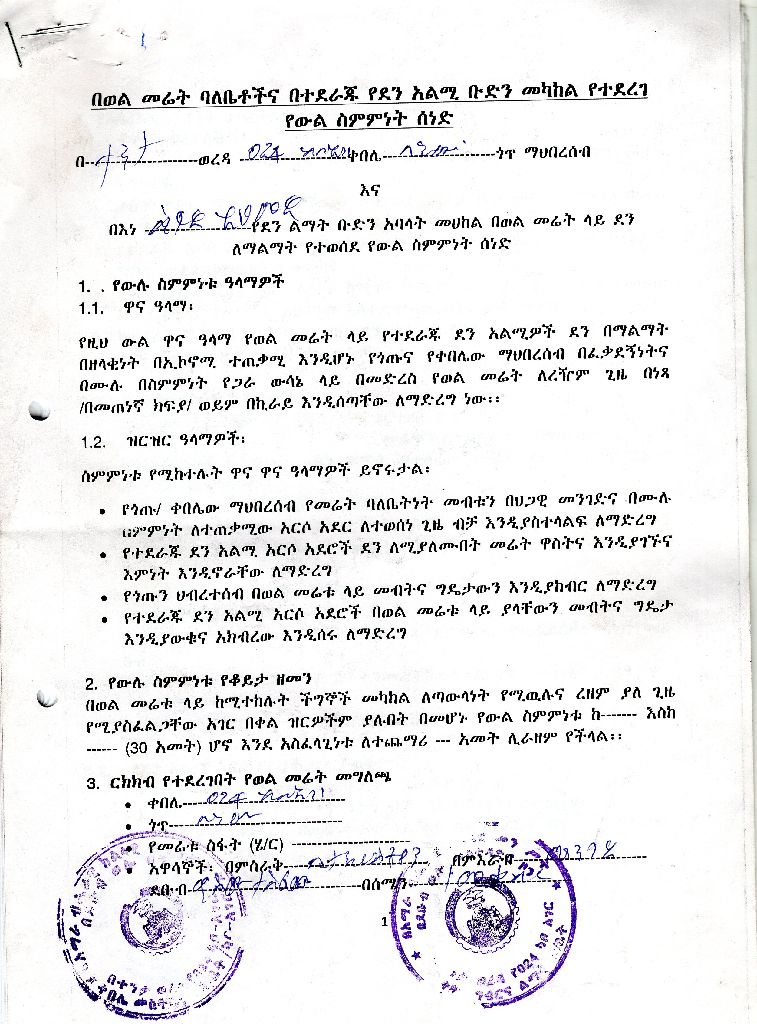 በወል መሬት ባለቤቶችና በተደራጁ የደን አልሚ ቡድን መካከል የተደረገ
የውል ስምምነት ሰነድ
በ--ታንታ---ወረዳ 024 ቀበሌ---ጎጥ ማህበረሰብ
እና
በእነ የደን ልማት ቡድን አባላት መሀከል በወል መሬት ላይ ደን
ለማልማት የተወሰደ የውል ስምምነት ሰነድ
1. . የውሉ ስምምነቱ ዓላማዎች
1.1. ዋና ዓላማ፡
የዚህ ውል ዋና ዓላማ የወል መሬት ላይ የተደራጁ ደን አልሚዎች ደን በማልማት
በዘላቂነት በኢኮኖሚ ተጠቃሚ እንዲሆኑ የጎጡና የቀበሌው ማህበረሰብ በፈቃደኝነትና
በሙሉ በስምምነት የጋራ ውሳኔ ላይ በመድረስ የወል መሬት ለረዥም ጊዜ በነጻ
/በመጠነኛ ክፍያ/ ወይም በኪራይ እንዲሰጣቸው ለማድረግ ነው፡፡
1.2. ዝርዝር ዓላማዎች፡
ስምምነቱ የሚከተሉት ዋና ዋና ዓላማዎች ይኖሩታል፡
• የጎጡ/ ቀበሌው ማህበረሰብ የመሬት ባለቤትነት መብቱን በህጋዊ መንገድና በሙሉ
ስምምነት ለተጠቃሚው አርሶ አደር ለተወሰነ ጊዜ ብቻ እንዲያስተላልፍ ለማድረግ
• የተደራጁ ደን አልሚ አርሶ አደሮች ደን ለሚያለሙበት መሬት ዋስትና እንዲያገኙና
እምነት እንዲኖራቸው ለማድረግ
• የጎጡን ህብረተሰብ በወል መሬቱ ላይ መብትና ግዴታውን እንዲያከብር ለማድረግ
• የተደራጁ ደን አልሚ አርሶ አደሮች በወል መሬቱ ላይ ያላቸውን መብትና ግዴታ
እንዲያውቁና አክብረው እንዲሰሩ ለማድረግ
2. የውሉ ስምምነቱ የቆይታ ዘመን
በወል መሬቱ ላይ ከሚተከሉት ችግኞች መካከል ለጣውላነት የሚዉሉና ረዘም ያለ ጊዜ
የሚያስፈልጋቸው አገር በቀል ዝርዎችም ያሉበት በመሆኑ የውል ስምምነቱ ከ------- እስከ
------ (30 አመት) ሆኖ እንደ አስፈላጊነቱ ለተጨማሪ --- አመት ሊራዘም የችላል፡፡
3. ርክክብ የተደረገበት የወል መሬት መግለጫ
• ቀበሌ---024
• ጎጥ---
• የመሬቱ ስፋት (ሄ/ር) ---
• አዋሳኞች፡ በምስራቅ--- በምእራብ---
ደቡብ--- በሰሜን---
1